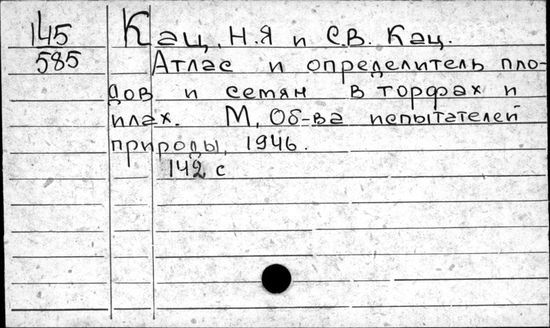 145 Кац, Н.Я и С.В. Кац.
585 Атлас и определитель пло-
дов и семян в торфах и
илах. М, Об-ва испытателей
природы, 1946.
142 с